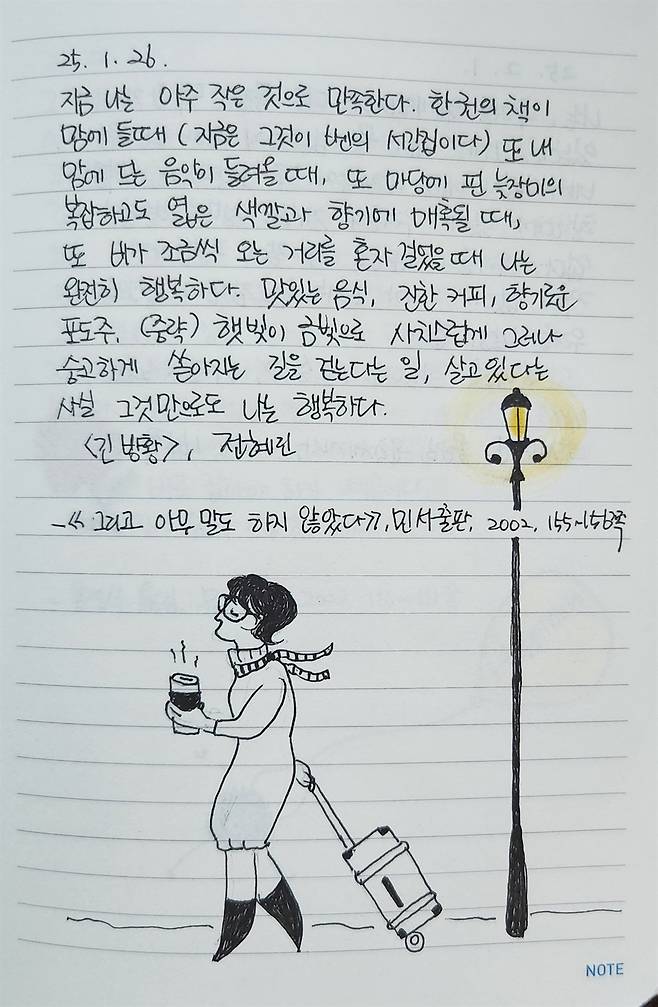 25. 1. 26.
지금 나는 아주 작은 것으로 만족한다. 한 권의 책이
맘에 들때 (지금은 그것이 벤의 시간집이다) 또 내
맘에 드는 음악이 들려올 때, 또 마당에 핀 늦장미의
복잡하고도 엷은 색깔과 향기에 매혹될 때,
또 비가 조금씩 오는 거리를 혼자 걸었을 때 나는
완전히 행복하다. 맛있는 음식, 진한 커피, 향기로운
포도주. (중략) 햇빛이 금빛으로 사치스럽게 그러나
숭고하게 쏟아지는 길을 걷는다는 일, 살고 있다는
사실 그것만으로도 나는 행복하다.
<긴 방황>, 전혜린
-《그리고 아무 말도 하지 않았다》, 민서출판, 2002, 155~156쪽
NOTE